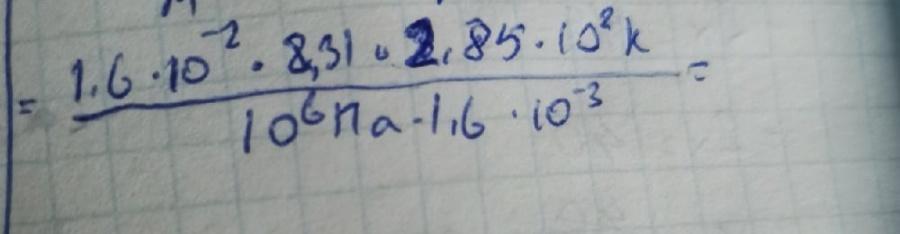 = 1,6 · 10⁻² · 8,31 · 2,85 · 10² k =
10⁶ Па · 1,6 · 10⁻³